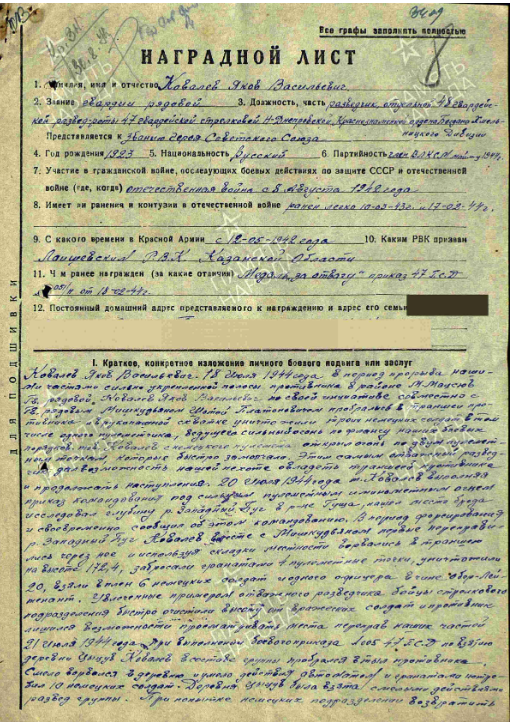 Все графы заполнять полностью
НАГРАДНОЙ ЛИСТ
1. Фамилия, имя и отчество Ковалев Яков Васильевич
2. Звание гвардии рядовой 3. Должность, часть разведчик, отдельной 48 гвардей-
ской разведроты 47 гвардейской стрелковой Н-Днепровской, Краснознаменной ордена Богдана Хмель-
ницкого Дивизии
Представляется к званию Героя Советского Союза
4. Год рождения 1923 5. Национальность Русский 6. Партийность член ВЛКСМ
7. Участие в гражданской войне, последующих боевых действиях по защите СССР и отечественной
войне (где, когда) отечественная война с 5 Августа 1942 года
8. Имеет ли ранения и контузии в отечественной войне ранен легко 10-03-43г. и 17-02-44г.
9. С какого времени в Красной Армии с 12-05-1942 года 10. Каким РВК призван
Лаишевским РВК Казанской Области
11. Чем ранее награжден (за какие отличия) Медаль "за отвагу" приказ 47 ГСД
№ 05/н от 18-02-44г.
12. Постоянный домашний адрес представляемого к награждению и адрес его семьи
ДЛЯ ПОДШИВКИ
I. Краткое, конкретное изложение личного боевого подвига или заслуг
Ковалев Яков Васильевич 18 Июля 1944 года в период прорыва наши-
ми частями сильно укрепленной полосы противника в районе
Гв. рядовой Ковалев Яков Васильевич по своей инициативе совместно с
Гв. рядовым Мишкудьяном Платоновичем пробрались в траншею про-
тивника в рукопашной схватке уничтожили троих немецких солдат в том
числе одного пулеметчика, ведущего сильный огонь по флангу наших боевых
порядков. Ковалев открыл огонь по двум пулемет-
которые быстро замолчали. Этим самым отважный развед-
чик дал возможность нашей пехоте овладеть траншеей противника
и продолжать наступление. 20 Июля 1944 года т. Ковалев выполняя
приказ командования под сильным пулеметным и минометным огнем
исследовал глубину р. Западный Буг в р-не нашел место брода
и своевременно сообщил об этом командованию. В период форсирования
р. Западный Буг Ковалев вместе с Мишкудьяном первые переправи-
лись через нее и используя складки местности ворвались в траншею
на высоте 172,4, забросали гранатами 4 пулеметные точки, уничтожили
20, взяли в плен 6 немецких солдат и одного офицера в чине Обер-Лей-
тенант. Увлеченные примером отважного разведчика бойцы стрелкового
подразделения быстро очистили высоту от вражеских солдат и противник
лишился возможности просматривать места переправ наших частей
21 Июля 1944 года При выполнении боевого приказа № 005 47 ГСД по взятию
деревни Ковалев в составе группы пробрался в тыл противника.
Смело ворвался в деревню и умело действуя автоматом и гранатами истре-
бил 10 немецких солдат. Деревня была взята смелыми действиями
развед группы. При попытке немецких подразделений возвратить